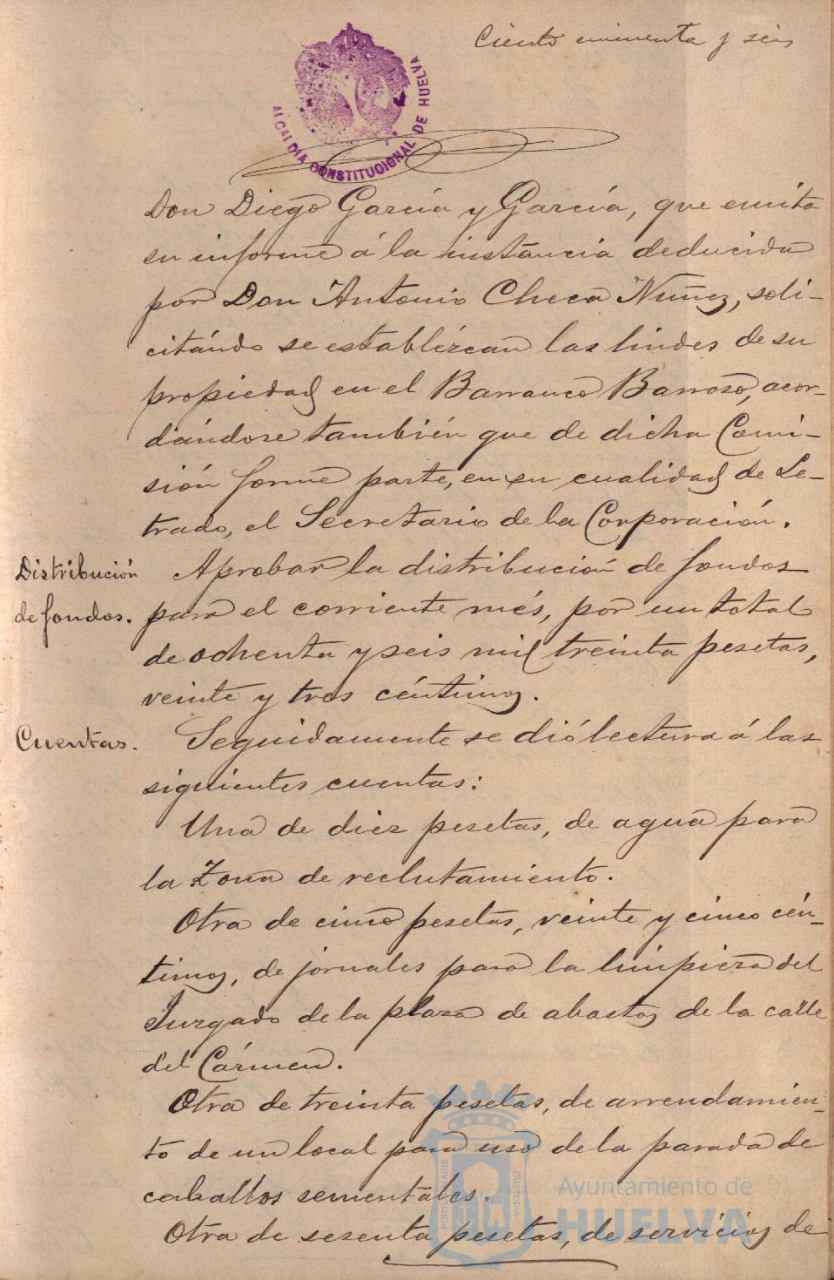 Ciento cincuenta y seis
ALCALDIA CONSTITUCIONAL DE HUELVA
Don Diego García y García, que emita
su informe á la instancia deducida
por Don Antonio Checa Nuñez, soli-
citándo se establézcan las lindes de su
propiedad en el Barranco Barroso, acor-
dándose también que de dicha Comi-
sión forme parte, en su cualidad de Le-
trado, el Secretario de la Corporación.
Distribución
de fondos.
Aprobar la distribución de fondos
para el corriente més, por un total
de ochenta y seis mil treinta pesetas,
veinte y tres céntimos.
Cuentas.
Seguidamente se dió lectura á las
siguientes cuentas:
Una de diez pesetas, de agua para
la Zona de reclutamiento.
Otra de cinco pesetas, veinte y cinco cén-
timos, de jornales para la limpieza del
Juzgado de la plaza de abastos de la calle
del Cármen.
Otra de treinta pesetas, de arrendamien-
to de un local para uso de la parada de
caballos sementales.
Otra de sesenta pesetas, de servicios de
Ayuntamiento de
HUELVA